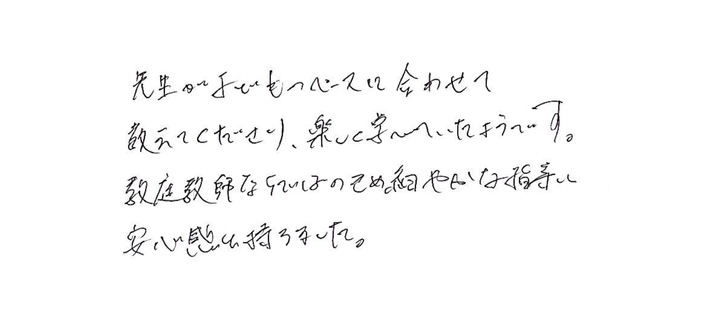 先生が子どものペースに合わせて
教えてくださり、楽しく学んでいたようです。
家庭教師ならではのきめ細やかな指導に
安心感を持ちました。